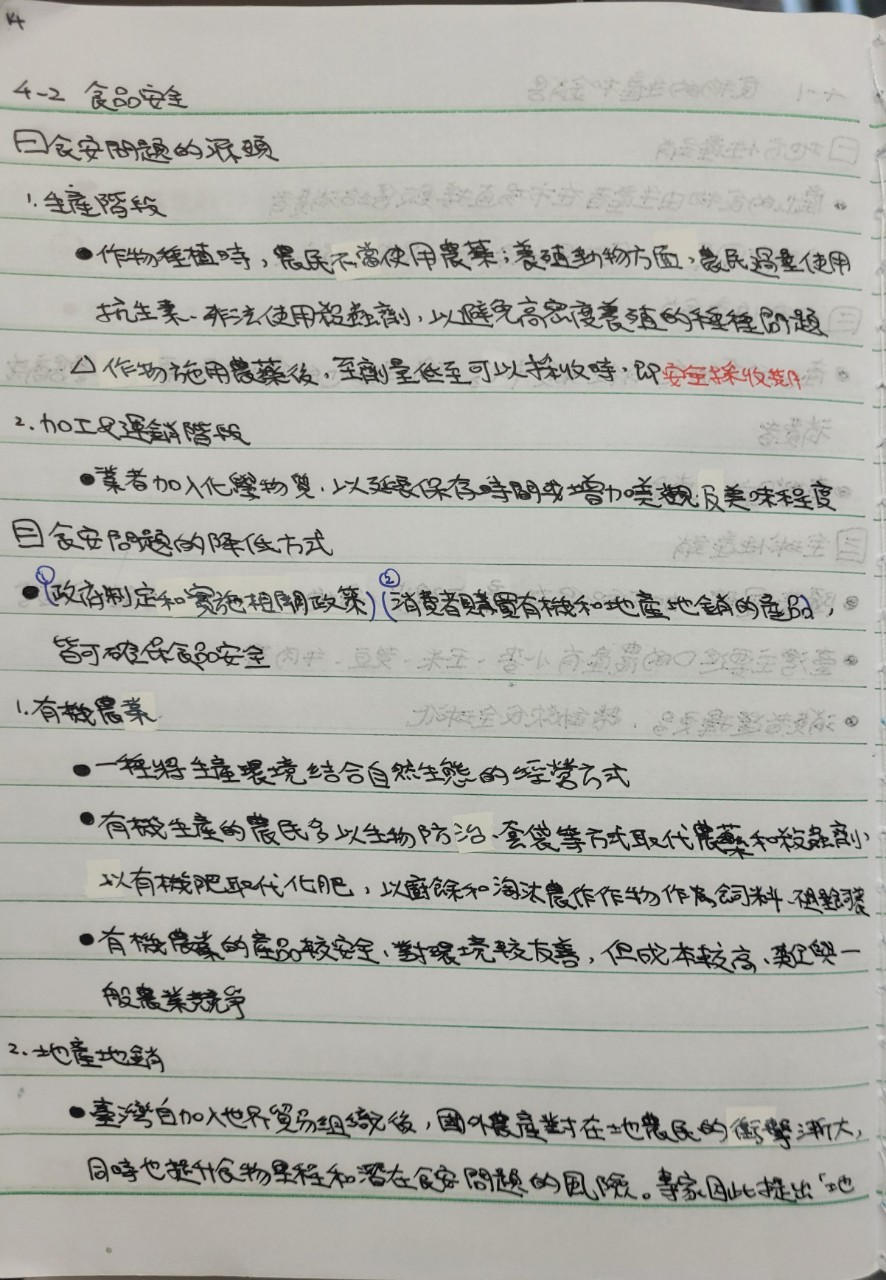 14
4-2 食品安全
㊀食安問題的源頭
1.生產階段
●作物種植時，農民不當使用農藥；養殖動物方面，農民過量使用
抗生素、非法使用殺蟲劑，以避免高密度養殖的種種問題
△作物施用農藥後，至劑量低至可以採收時，即安全採收期
2.加工及運銷階段
●業者加入化學物質，以延長保存時間或增加美觀及美味程度
㊁食安問題的降低方式
●①(政府制定和實施相關政策)②(消費者購買有機和地產地銷的產品)，
皆可確保食品安全
1.有機農業
●一種將生產環境結合自然生態的經營方式
●有機生產的農民多以生物防治、套袋等方式取代農藥和殺蟲劑，
以有機肥取代化肥，以廚餘和淘汰農作作物作為飼料、
●有機農業的產品較安全、對環境較友善，但成本較高、難與一
般農業競爭
2.地產地銷
●臺灣自加入世界貿易組織後，國外農產對在地農民的衝擊漸大，
同時也提升食物里程和潛在食安問題的風險。專家因此提出「地